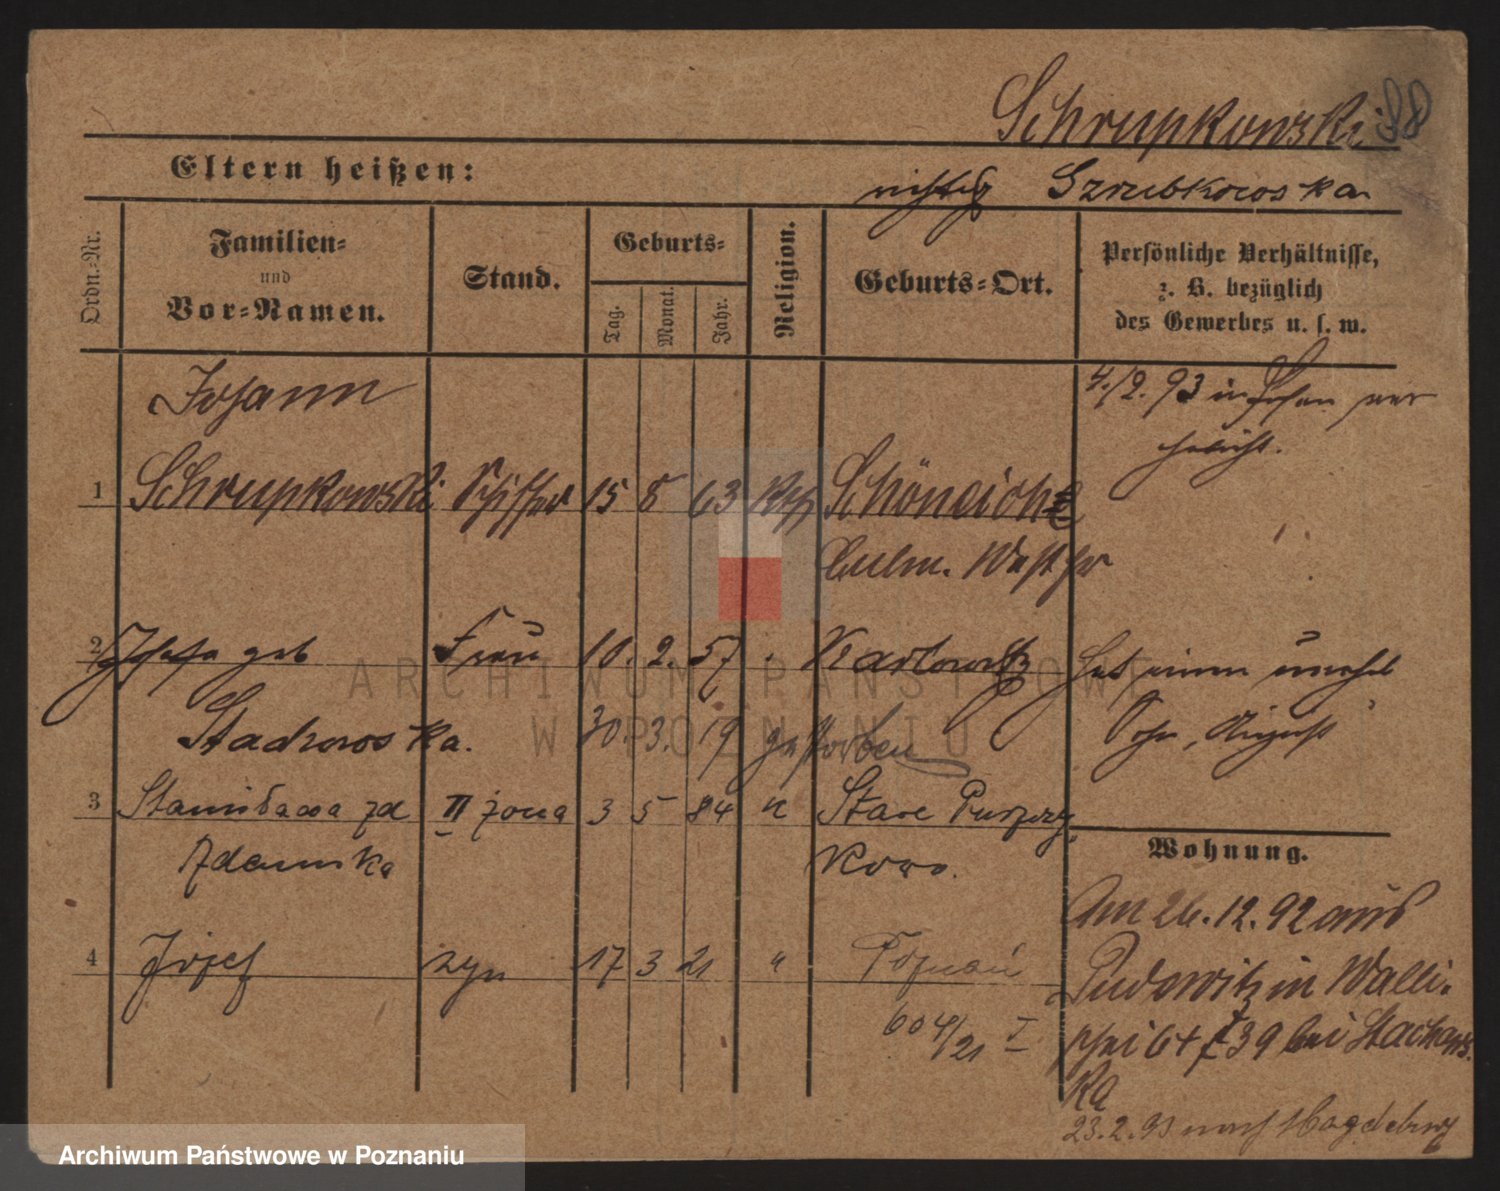 Schrupkowski 88
Eltern heißen:
richtig Szrubkowska
Ordn.-Nr.
Familien-
und
Vor-Namen.
Stand.
Geburts-
Tag.
Monat.
Jahr.
Religion.
Geburts-Ort.
Persönliche Verhältnisse,
z. B. bezüglich
des Gewerbes u. s. w.
Johann
4./2. 93 in Posen ver
1 Schrupkowski Schiffer 15 8 63 Kth Schöneiche
Culm. Westpr
2 Josefa geb Frau 10. 2. 57 " Karlowitz
Hat einen unehel
Stachowska. 30. 3. 19 gestorben
Sohn, August
3 Stanisława zd II żona 3 5 84 "
Zdamska
4 Józef syn 17 3 21 " Poznań
604/21 I
Wohnung.
Am 26. 12. 92 aus
Pudewitz in Walli-
schei 64 39 bei Stachows
ka
23. 2. 93 nach Magdeburg
ARCHIWUM PAŃSTWOWE
W POZNANIU
Archiwum Państwowe w Poznaniu